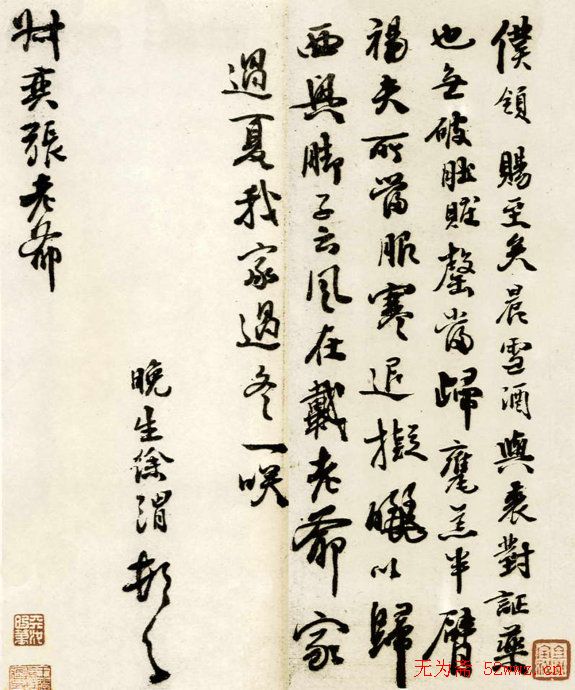 僕領賜至矣晨雪酒與裘對証藥
也無破肚贓罄當歸甕羔半臂
褐夫所常服寒退擬曬以歸
西興脚子云風在戴老爺家
過夏我家過冬一咲
晚生徐渭頓首
張老爺
无为斋 52wwz.cn